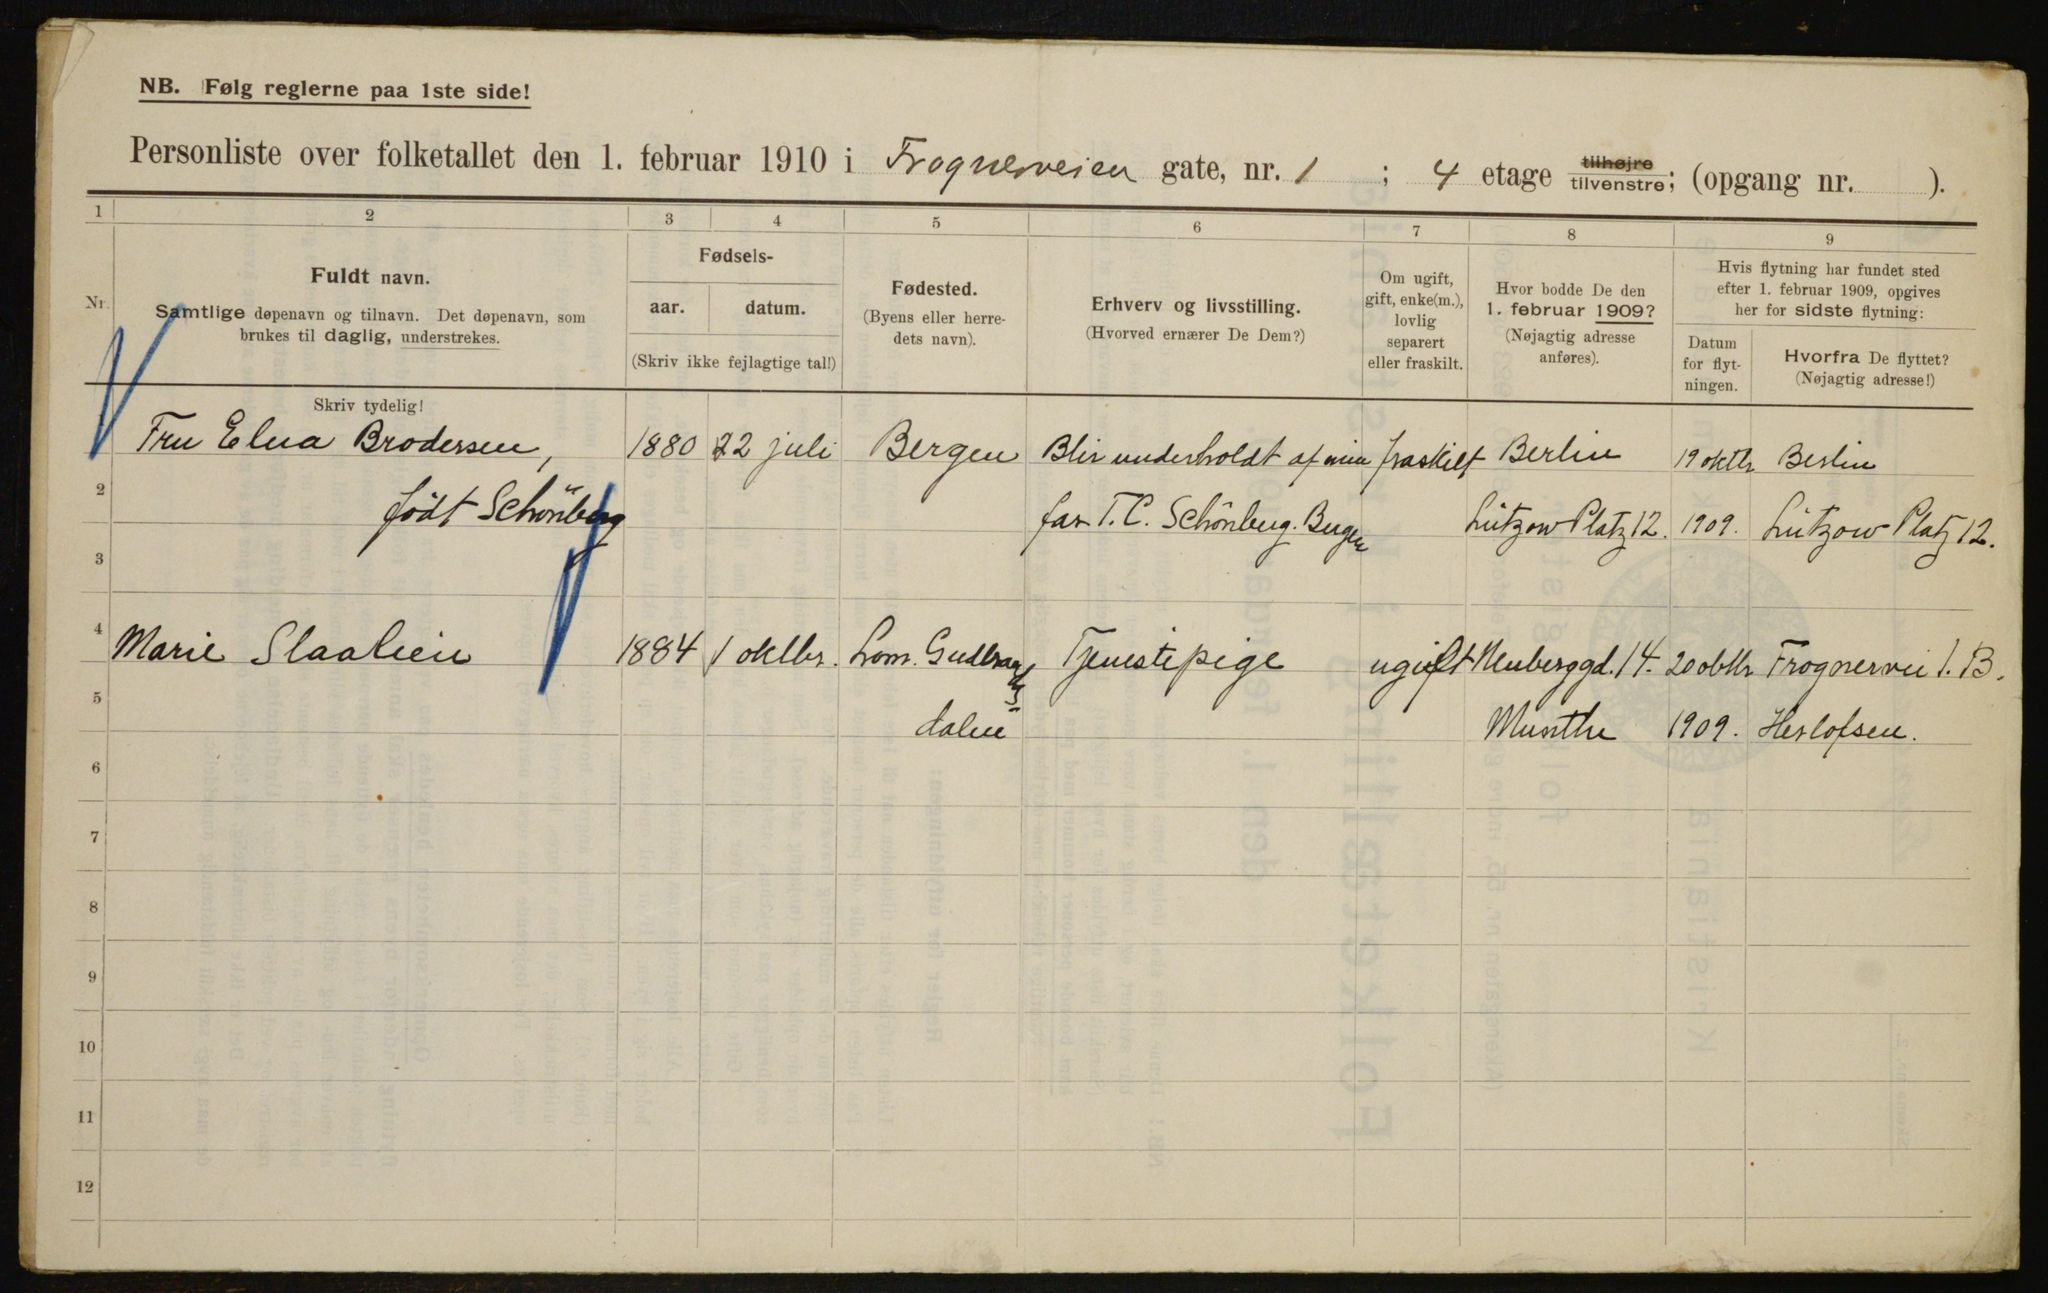 NB. Følg reglerne paa 1ste side!
Personliste over folketallet den 1. februar 1910 i Frognerveien gate, nr. 1 ; 4 etage tilhøjre tilvenstre; (opgang nr. ).
1 2 3 4 5 6 7 8 9
Nr.
Fuldt navn.
Samtlige døpenavn og tilnavn. Det døpenavn, som
brukes til daglig, understrekes.
Skriv tydelig!
Fødsels-
aar. datum.
(Skriv ikke fejlagtige tal!)
Fødested.
(Byens eller herre-
dets navn).
Erhverv og livsstilling.
(Hvorved ernærer De Dem?)
Om ugift,
gift, enke(m.),
lovlig
separert
eller fraskilt.
Hvor bodde De den
1. februar 1909?
(Nøjagtig adresse
anføres).
Hvis flytning har fundet sted
efter 1. februar 1909, opgives
her for sidste flytning:
Datum
for flyt-
ningen.
Hvorfra De flyttet?
(Nøjagtig adresse!)
Fru Elna Brodersen, 1880 22 juli Bergen Blir underholdt af min fraskilt Berlin 19 oktbr Berlin
2 født Schönberg far T.C. Schönberg. Bergen Lützow Platz 12. 1909. Lützow Platz 12.
3
4 Marie Slaalien 1884 1 oktbr. Lom. Gudbrands Tjenestepige ugift Neuberggd. 14. 20 oktbr Frognervei 1. B.
5 dalen Munthe 1909. Herlofsen.
6
7
8
9
10
11
12